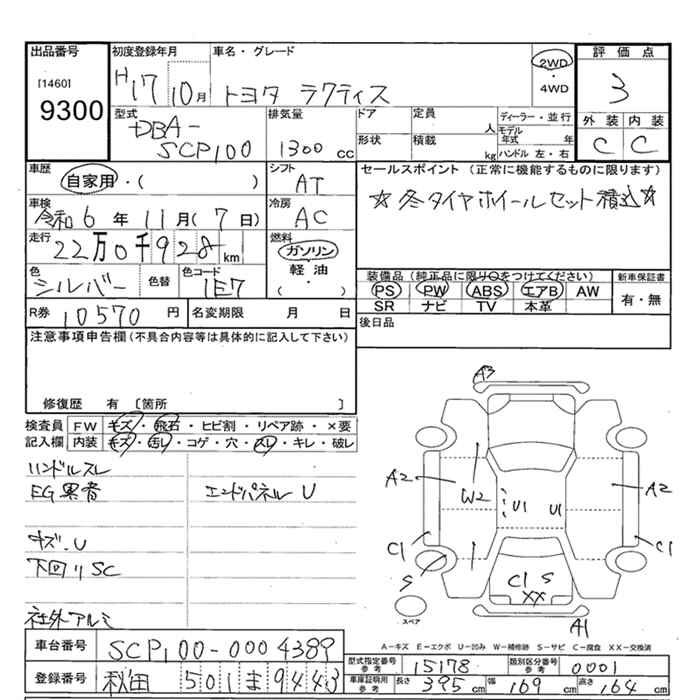 出品番号
[1460]
9300
初度登録年月
H17 10月
車名・グレード
トヨタ ラクティス
2WD
・
4WD
評価点
3
外装 内装
C C
型式
DBA-
SCP100
排気量
1300 cc
ドア
定員
人
形状
積載
kg
ディーラー・並行
モデル年式 年
ハンドル 左・右
車歴
自家用・( )
シフト
AT
セールスポイント (正常に機能するものに限ります)
☆冬タイヤホイールセット積込☆
車検
令和6年11月(7日)
冷房
AC
走行
22万0千928km
燃料
ガソリン
軽油
( )
色
シルバー
色替
色コード
1E7
装備品(純正品に限り○をつけてください)
PS PW ABS エアB AW
SR ナビ TV 本革
新車保証書
有・無
R券 10570円
名変期限 月 日
後日品
注意事項申告欄(不具合内容等は具体的に記入して下さい)
修復歴 有 〔箇所 〕
検査員 FW キズ・飛石・ヒビ割・リペア跡・×要
記入欄 内装 キズ・汚レ・コゲ・穴・スレ・キレ・破レ
ハンドルスレ
EG異音 エンドパネルU
キズ.U
下回りSC
社外アルミ
A3
A2 W2 U1 U1 A2
C1 C1
S C1 S
XX
スペア
A1
A-キズ E-エクボ U-凹み W-補修跡 S-サビ C-腐食 XX-交換済
車台番号 SCP100-0004389
登録番号 秋田 501 ま 9443
型式指定番号 参考 15178
類別区分番号 参考 0001
車庫証明用 参考 長さ 395cm 幅 169cm 高さ 164cm